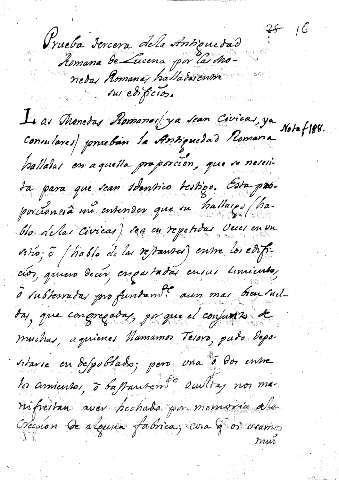 28 16
Prueba tercera de la Antiguedad
Romana de Lucena por las Mo-
nedas Romanas halladas entre
sus edificios.
Las Monedas Romanas (ya sean Civicas, ya
Consulares) prueban la Antiguedad Romana
halladas en aquella proporcion, que se necesi-
ta para que sean identico testigo. Esta pro-
porcion a mi entender que su hallazgo (ha-
blo de las Civicas) sea en repetidas veces en un
sitio; ó (hablo de las restantes) entre los edifi-
cios, quiero decir, empastadas en sus cimientos,
ó subterradas profundamte aun mas bien suel-
tas, que congregadas, por que el conjunto de
muchas, a quienes llamamos Tesoro, pudo depo-
sitarse en despoblado; pero una ó dos entre
los cimientos, ó bastantemte ocultas, nos ma-
nifiestan aver hechado por memoria de la
ereccion de alguna fabrica; cosa q oi usamos
mui
Nota f 188.